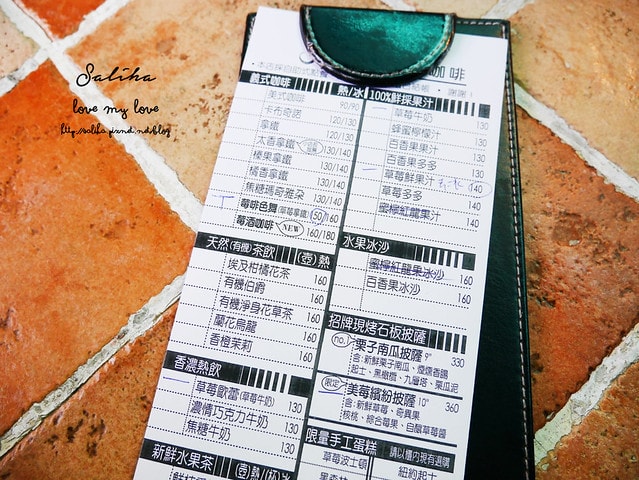 Saliha
love my love
http://saliha.pixnet.net/blog
咖啡
義式咖啡 熱/冰
美式咖啡 90/90
卡布奇諾 120/130
拿鐵 120/130
太香拿鐵 130/140
榛果拿鐵 130/140
橘香拿鐵 130/140
焦糖瑪奇雅朵 130/140
莓啡色舞(草莓拿鐵) 150/160
莓酒咖啡 NEW 160/180
天然(有機)茶飲 (壺)熱
埃及柑橘花茶 160
有機伯爵 160
有機淨身花草茶 160
蘭花烏龍 160
香橙茉莉 160
香濃熱飲
草莓歐蕾(草莓牛奶) 130
濃情巧克力牛奶 130
焦糖牛奶 130
新鮮水果茶 (壺)熱/(杯)冰
100%鮮採果汁
草莓牛奶 130
蜂蜜檸檬汁 130
百香果汁 130
百香果多多 130
草莓鮮果汁 140
草莓多多 140
蜜檸紅龍果汁 130
水果冰沙
蜜檸紅龍果冰沙 160
百香果冰沙 160
招牌現烤石板披薩
no.1 栗子南瓜披薩 9" 330
含:新鮮栗子南瓜、煙燻香腸
起士、黑橄欖、九層塔、栗瓜泥
限定 美莓繽紛披薩 10" 360
含:新鮮草莓、奇異果
核桃、綜合莓果、自釀草莓醬
限量手工蛋糕 請以櫃內現有選購
草莓波士頓 紐約起士